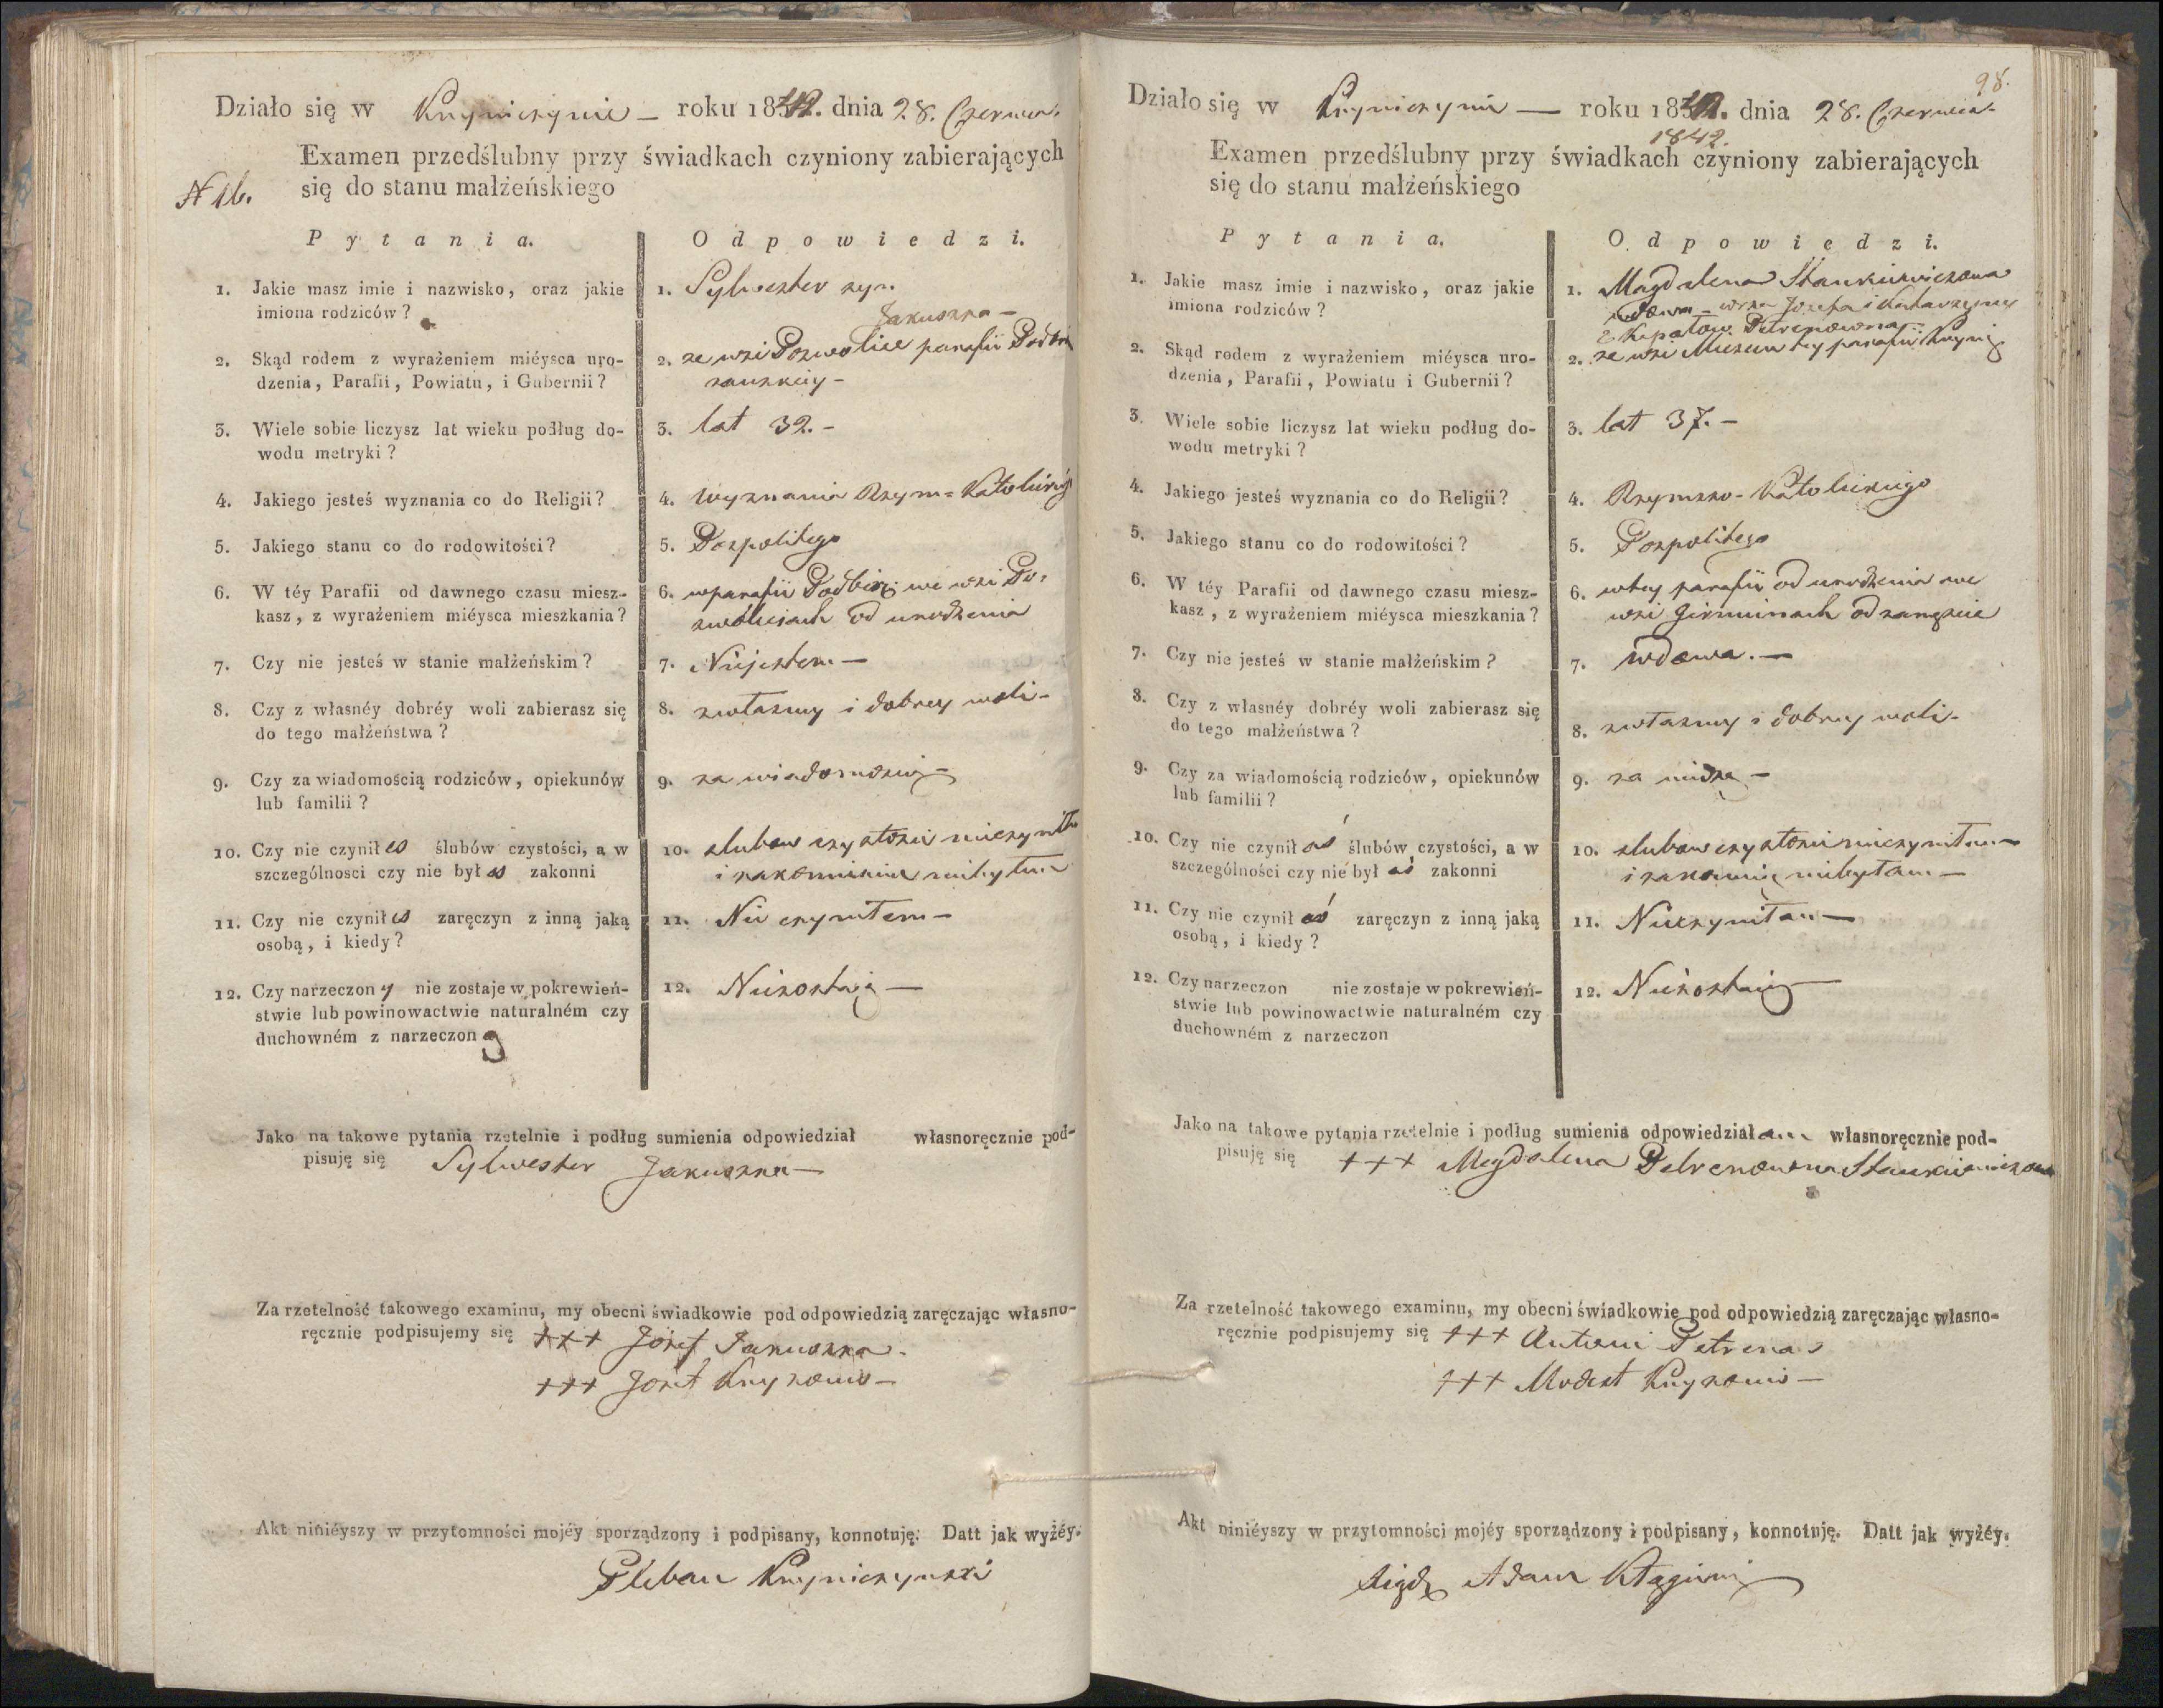 Działo się w Kryniczynie — roku 1842. dnia 28. Czerwca.
Examen przedślubny przy świadkach czyniony zabierających
N 16. się do stanu małżeńskiego
Pytania. Odpowiedzi.
1. Jakie masz imie i nazwisko, oraz jakie imiona rodziców?
1. Sylwester syn
Jakuszka —
2. Skąd rodem z wyrażeniem miéysca uro-
dzenia, Parafii, Powiatu, i Gubernii?
2. ze wsi Pozwolice parafii
3. Wiele sobie liczysz lat wieku podług do-
wodu metryki?
3. lat 32. —
4. Jakiego jesteś wyznania co do Religii?
4. Wyznania Rzym=
5. Jakiego stanu co do rodowitości?
5. Pospolitego
6. W téy Parafii od dawnego czasu miesz-
kasz, z wyrażeniem miéysca mieszkania?
6. w parafii we wsi Po-
zwolicjach od urodzenia
7. Czy nie jesteś w stanie małżeńskim?
7. Niejestem —
8. Czy z własnéy dobréy woli zabierasz się
do tego małżeństwa?
8. zwłasney i dobrey woli —
9. Czy za wiadomością rodziców, opiekunów
lub familii?
9. za wiadomością —
10. Czy nie czynił es ślubów czystości, a w
szczególnosci czy nie był es zakonni
10. slubow czystosci
i
11. Czy nie czynił es zaręczyn z inną jaką
osobą, i kiedy?
11. Nie czyniłem —
12. Czy narzeczon y nie zostaje w pokrewień-
stwie lub powinowactwie naturalném czy
duchowném z narzeczon ą
12. Niezostaią —
Jako na takowe pytania rzetelnie i podług sumienia odpowiedział własnoręcznie pod-
pisuję się Sylwester Jakuszka —
Za rzetelność takowego examinu, my obecni świadkowie pod odpowiedzią zaręczając własno-
ręcznie podpisujemy się +++ Jozef Jakuszka.
+++ Jozef —
Akt niniéyszy w przytomności mojéy sporządzony i podpisany, konnotuję. Datt jak wyżéy.
Pleban Kryniczynski
98.
Działo się w Kryniczynie — roku 1842. dnia 28. Czerwca.
1842.
Examen przedślubny przy świadkach czyniony zabierających
się do stanu małżeńskiego
Pytania. Odpowiedzi.
1. Jakie masz imie i nazwisko, oraz jakie
imiona rodziców?
1. Magdalena Stankiewiczowa
wdowa — Jozefa i Katarzyny
z Petrenowna
2. Skąd rodem z wyrażeniem miéysca uro-
dzenia, Parafii, Powiatu i Gubernii?
2. ze wsi tey parafii
3. Wiele sobie liczysz lat wieku podług do-
wodu metryki?
3. lat 37. —
4. Jakiego jesteś wyznania co do Religii?
4. Rzymsko-Katolickiego
5. Jakiego stanu co do rodowitości?
5. Pospolitego
6. W téy Parafii od dawnego czasu miesz-
kasz, z wyrażeniem miéysca mieszkania?
6. wtey parafii od urodzenia we
wsi Girminach od
7. Czy nie jesteś w stanie małżeńskim?
7. wdowa. —
8. Czy z własnéy dobréy woli zabierasz się
do tego małżeństwa?
8. zwłasney i dobrey woli —
9. Czy za wiadomością rodziców, opiekunów
lub familii?
9. za wiedzą —
10. Czy nie czynił aś ślubów czystości, a w
szczególności czy nie był aś zakonni
10. slubow czystosci nieczyniłam —
i zakonnicą niebyłam —
11. Czy nie czynił aś zaręczyn z inną jaką
osobą, i kiedy?
11. Nieczyniłam —
12. Czy narzeczon nie zostaje w pokrewień-
stwie lub powinowactwie naturalném czy
duchowném z narzeczon
12. Niezostaię —
Jako na takowe pytania rzetelnie i podług sumienia odpowiedział am własnoręcznie pod-
pisuję się +++ Magdalena Petrenowna Stankiewiczowa
Za rzetelność takowego examinu, my obecni świadkowie pod odpowiedzią zaręczając własno-
ręcznie podpisujemy się +++ Antoni Petrena
+++ Modest —
Akt niniéyszy w przytomności mojéy sporządzony i podpisany, konnotuję. Datt jak wyżéy.
Adam